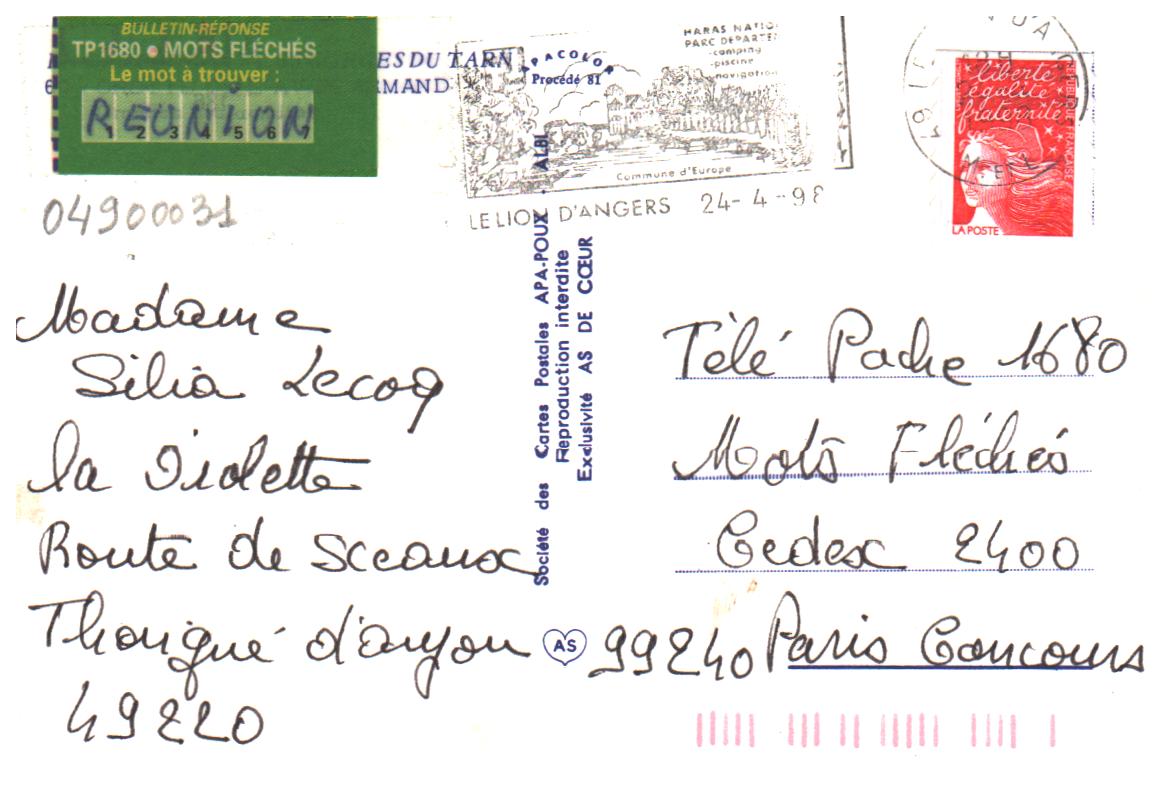 BULLETIN-RÉPONSE
TP1680 • MOTS FLÉCHÉS
Le mot à trouver :
REUNION
1 2 3 4 5 6 7
GES DU TARN
RMAND
APACOLOR
Procédé 81
HARAS NATIO
PARC DEPARTE
-camping
-piscine
-navigation
Commune d'Europe
LE LION D'ANGERS 24-4-98
liberté
égalité
fraternité
REPUBLIQUE FRANÇAISE
LA POSTE
04900031
Madame
Silia Lecoq
la Violette
Route de Sceaux
Thorigné d'anjou
49220
Société des Cartes Postales APA-POUX ALBI
Reproduction interdite
Exclusivité AS DE CŒUR
AS
Télé Poche 1680
Mots Fléchés
Cedex 2400
99240 Paris Concours